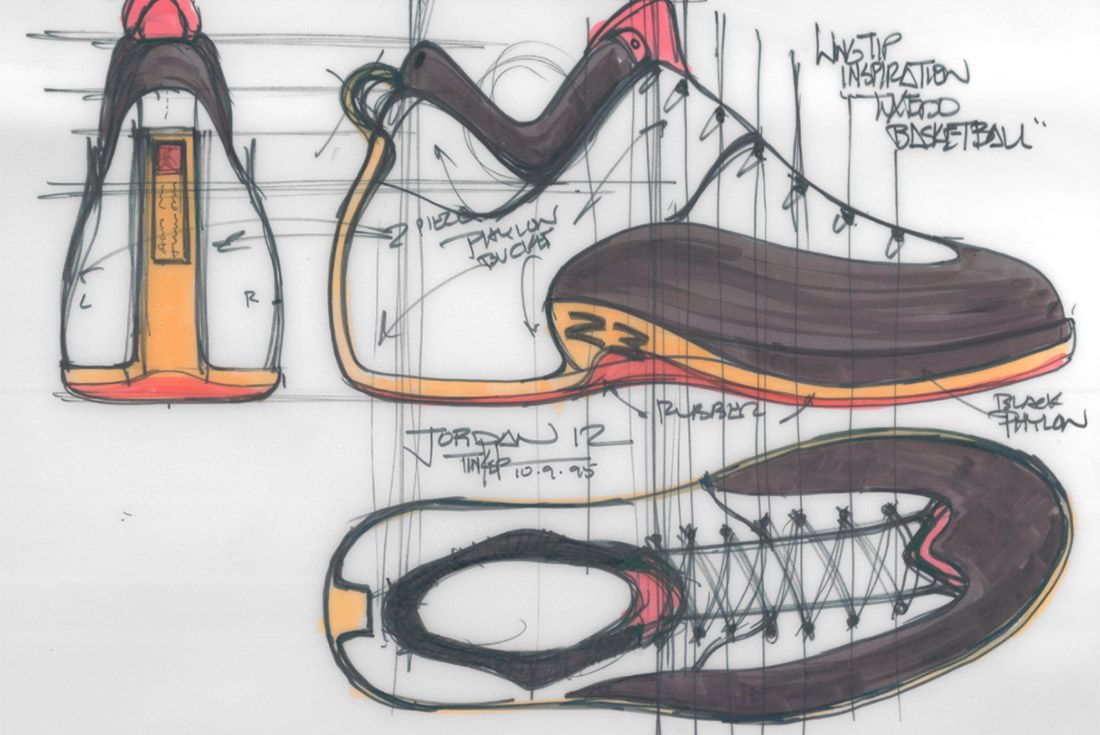 WINGTIP
INSPIRATION
TUXEDO
BASKETBALL"
2 PIECE
PHYLON
BUCKET
L
R
RUBBER
BLACK
PHYLON
JORDAN 12
TINKER 10.9.95